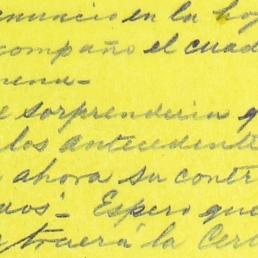 anuncio en la hoj
compaño el cuad
mena-
e sorprenderia q
los antecedente
ahora su contr
Espero que
la Cer